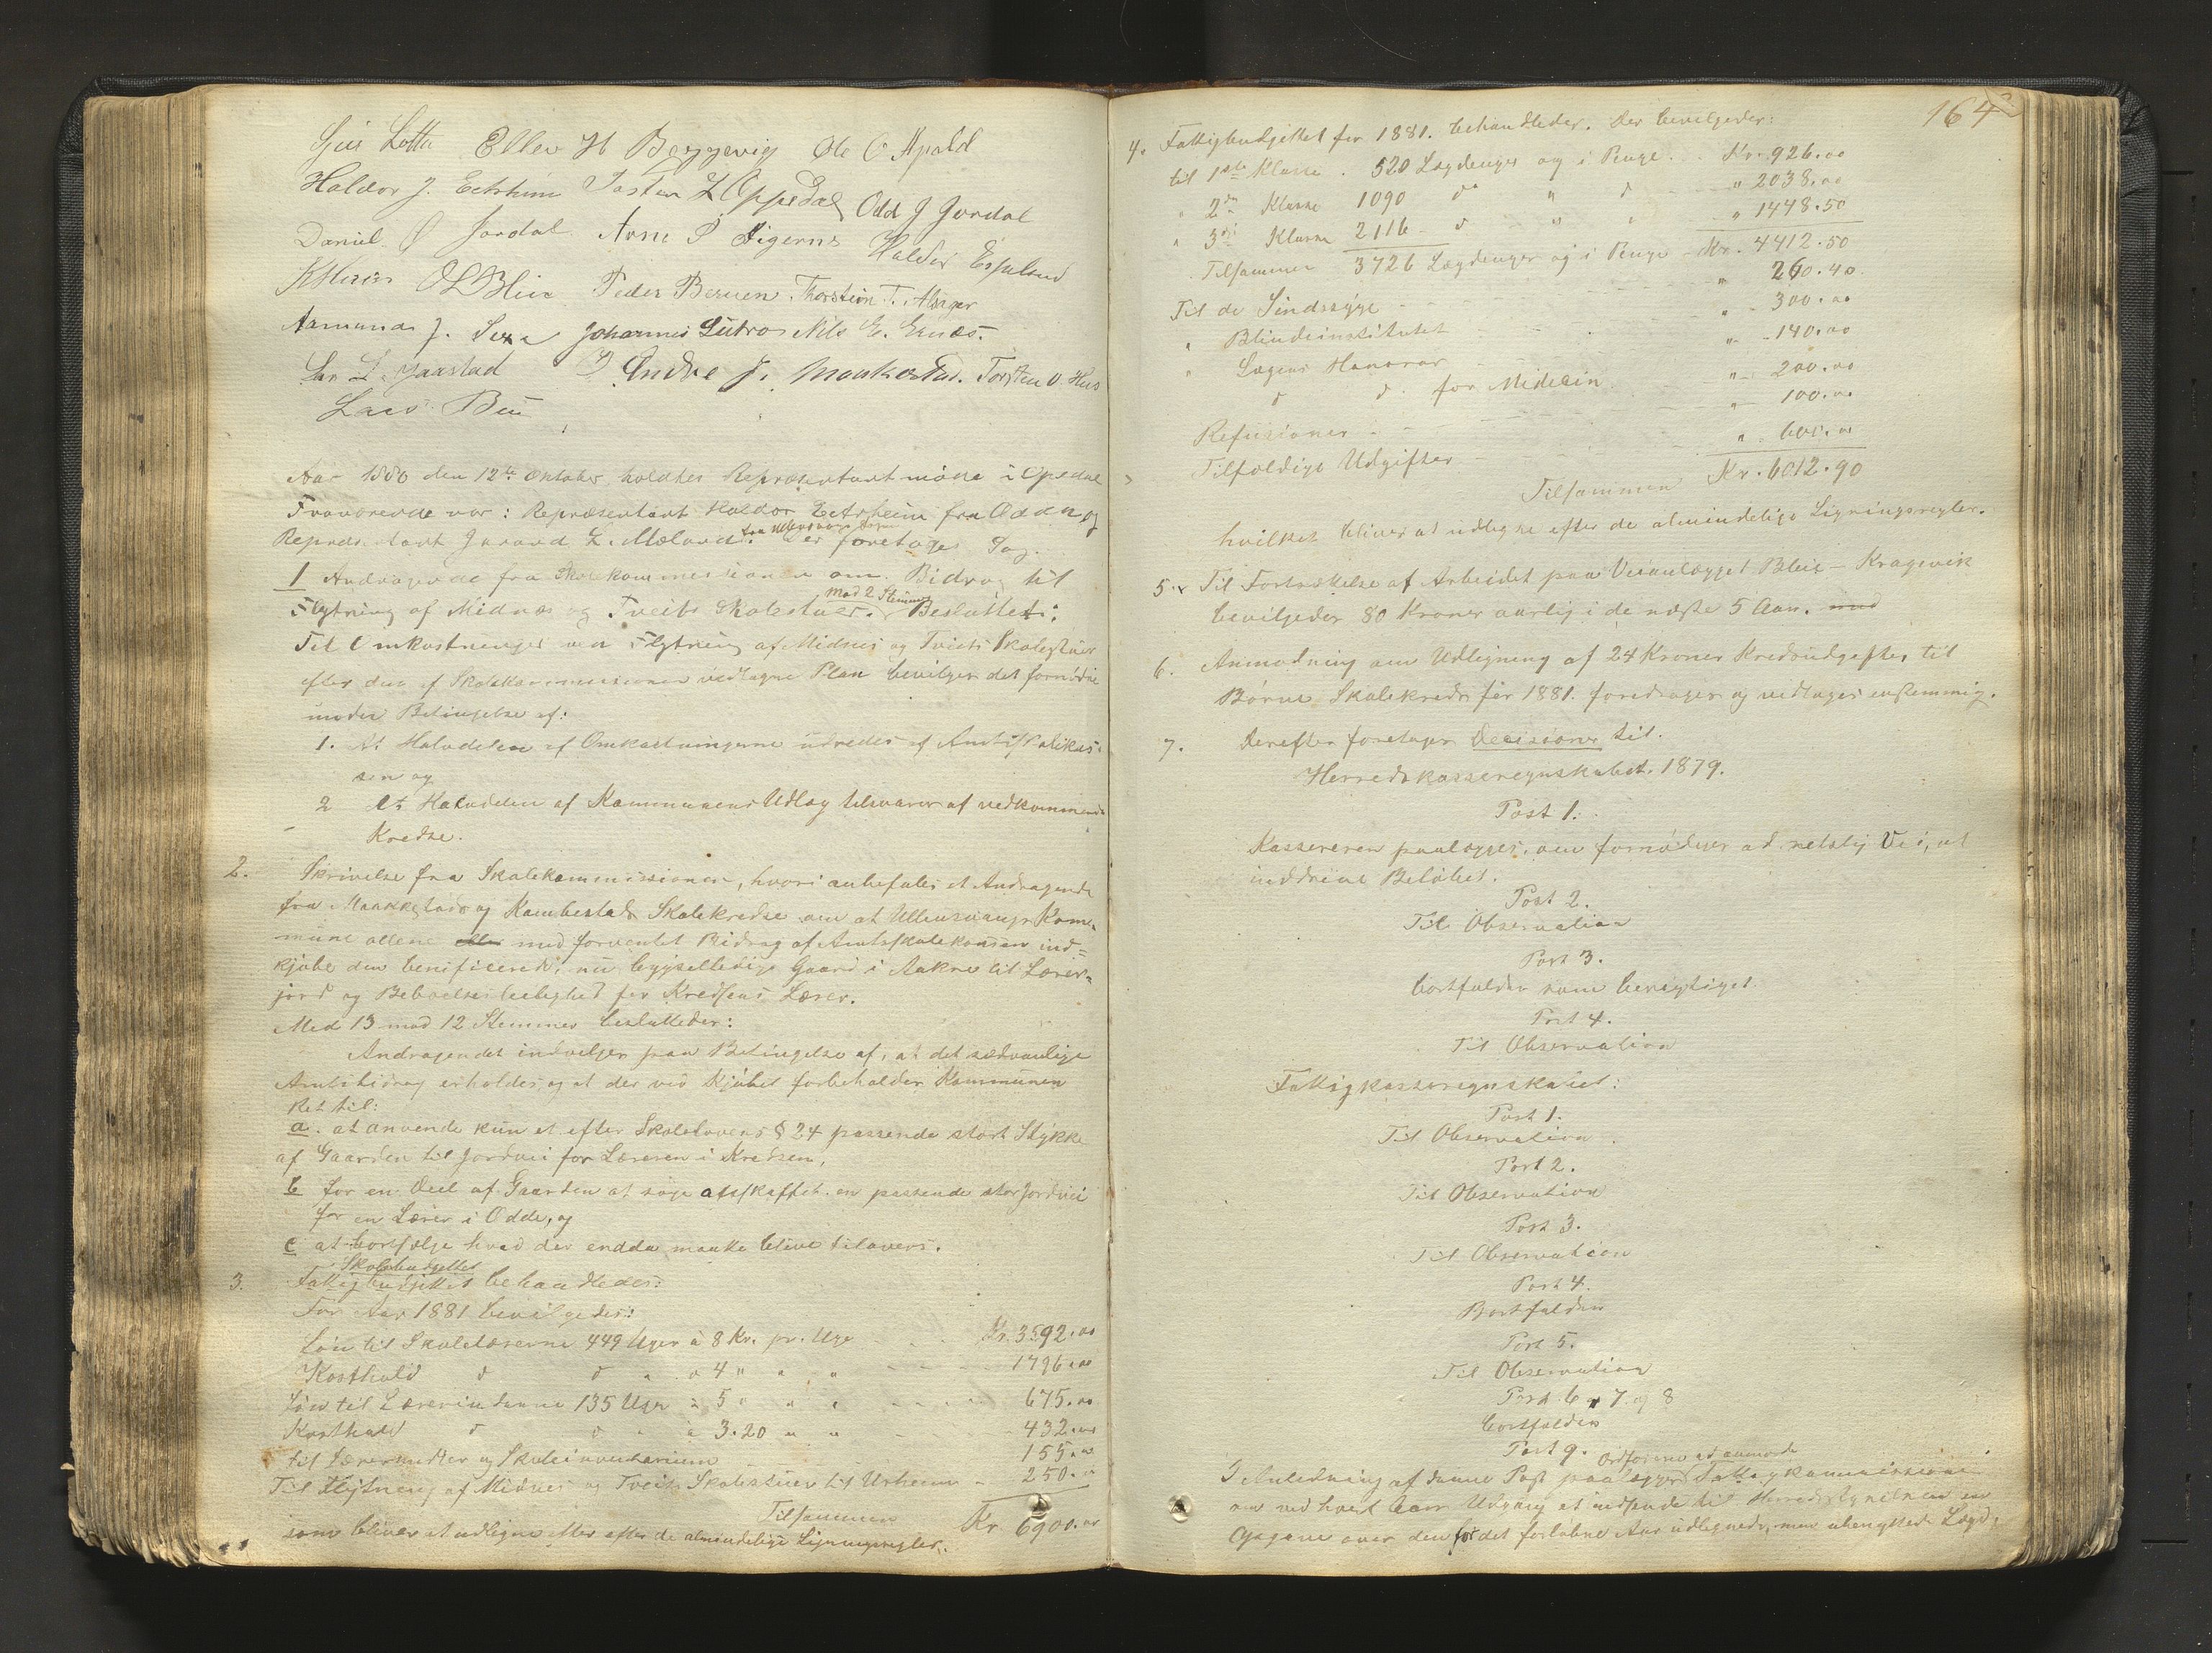 Sjur Lotte Ellev H Berggevig Ole O Apold
Haldor J. Eitrheim Torsten L Oppedal Odd J Jordal
Daniel O Jordal. Arne P Aigerns Haldor Espeland
Peder Beruen. Thorstein T. Alsager
Aamund J. Sexe Johannes Lutro Nils E. Ernæs.
Lar L. Jaastad J Endre J. Maakestad. Torsten O. Hus
Lars Bu
Aar 1880 den 12te Oktober holdtes Repræsentantmöde i Opedal
Fraværende var: Repræsentant Haldor Eitrheim fra Odda og
Repræsentant L. Mæland fra Ullensvang Sogn. Der foretages Sag.
1 Andragende fra Skolekommissionen om Bidrag til
Flytning af Midnæs og Tveits Skolestuer. mod 2 Stemmer Besluttet:
Til Omkostninger ved Flytning af Midnes og Tveits Skolestuer
efter den af Skolekommissionen vedtagne Plan bevilges det fornødne
under Betingelse af:
1. At Halvdelen af Omkostningerne udredes af Amtsskolekas-
sen og
2 At Halvdelen af Kommunens Udlæg tilsvares af vedkommende
Kredse.
2. Skrivelse fra Skolekommissionen, hvori anbefales et Andragende
fra Maakestads og Kambestads Skolekredse om at Ullensvangs Kom-
mune allene eller med forventet Bidrag af Amtsskolekassen ind-
kjøbe den benificerede, nu bygselledige Gaard i Aakre til Lærer-
jord og Beboelsesleilighed for Kredsens Lærer.
Med 13 mod 12 Stemmer besluttedes:
Andragendet indvilges paa Betingelse af, at det sædvanlige
Amtsbidrag erholdes, og at der ved Kjøbet forbeholdes Kommunen
Ret til:
a. at anvende kun et efter Skolelovens § 24 passende stort Stykke
af Gaarden til Jordvei for Læreren i Kredsen,
b for en Deel af Gaarden at søge afskaffet en passende stor Jordvei
for en Lærer i Odde, og
c at bortsælge hvad der endda maatte blive tilovers.
3. Skolebudgettet Fattigbudgettet behandledes:
For Aar 1881 bevilgedes:
Løn til Skolelærerne 449 Uger à 8 Kr. pr. Uge Kr. 3592.00
Kosthold d d " à 4 " " " 1796.00
Løn til Lærerinderne 135 Uger à 5 " " " 675.00
Kosthold d d " à 3.20 " " 432.00
til Læremidler og Skoleinventarium 155.00
Til Flytning af Midnes og Tveits Skolestuer til Urheim 250.00
Tilsammen Kr 6900.00
som bliver at udligne efter efter de almindelige Ligningsregler.
164
4. Fattigbudgettet for 1881. behandledes. Der bevilgedes:
til 1ste Klasse. 520 Lægdenger og i Penge. Kr. 926.00
" 2den Klasse 1090 do " d " 2038.00
" 3die Klasse 2116 d " " " 1448.50
Tilsammen 3726 Lægdenger og i Penge Kr. 4412.50
Til de Sindssyge " 260.40
" Blindeinstitutet " 300.00
" Lægens Honorar " 140.00
d d. for Medicin " 200.00
Refusioner " 100.00
Tilfældige Udgifter " 600.00
Tilsammen Kr. 6012.90
hvilket bliver at udligne efter de almindelige Ligningsregler.
5. Til Fortsættelse af Arbeidet paa Veianlægget Bleie - Kragevik
bevilgedes 80 Kroner aarlig i de næste 5 Aar. mod
6. Anmodning om Udligning af 24 Kroner Kredsudgifter til
Børve Skolekreds for 1881. foredrages og vedtages enstemmig.
7. Derefter foretages Decisioner til.
Herredskasseregnskabet. 1879.
Post 1.
Kassereren paalægges, om fornødiges ad retslig Vei, at
inddrive Beløbet.
Post 2.
Til Observation
Post 3.
bortfalder som berigtiget.
Post 4.
Til Observation
Fattigkasseregnskabet:
Post 1.
Til Observation.
Post 2.
Til Observation
Post 3.
Til Observation
Post 4.
Bortfalder
Post 5.
Til Observation
Post. 6, 7 og 8
bortfalder
Post 9.
I Anledning af denne Post paalægges Ordføreren at anmode Fattigkommissionen
om ved hvert Aars Udgang at indsende til Herredstyrelsen en
Opgave over den for det forløbne Aar udlignede, men ubenyttede Lægd,